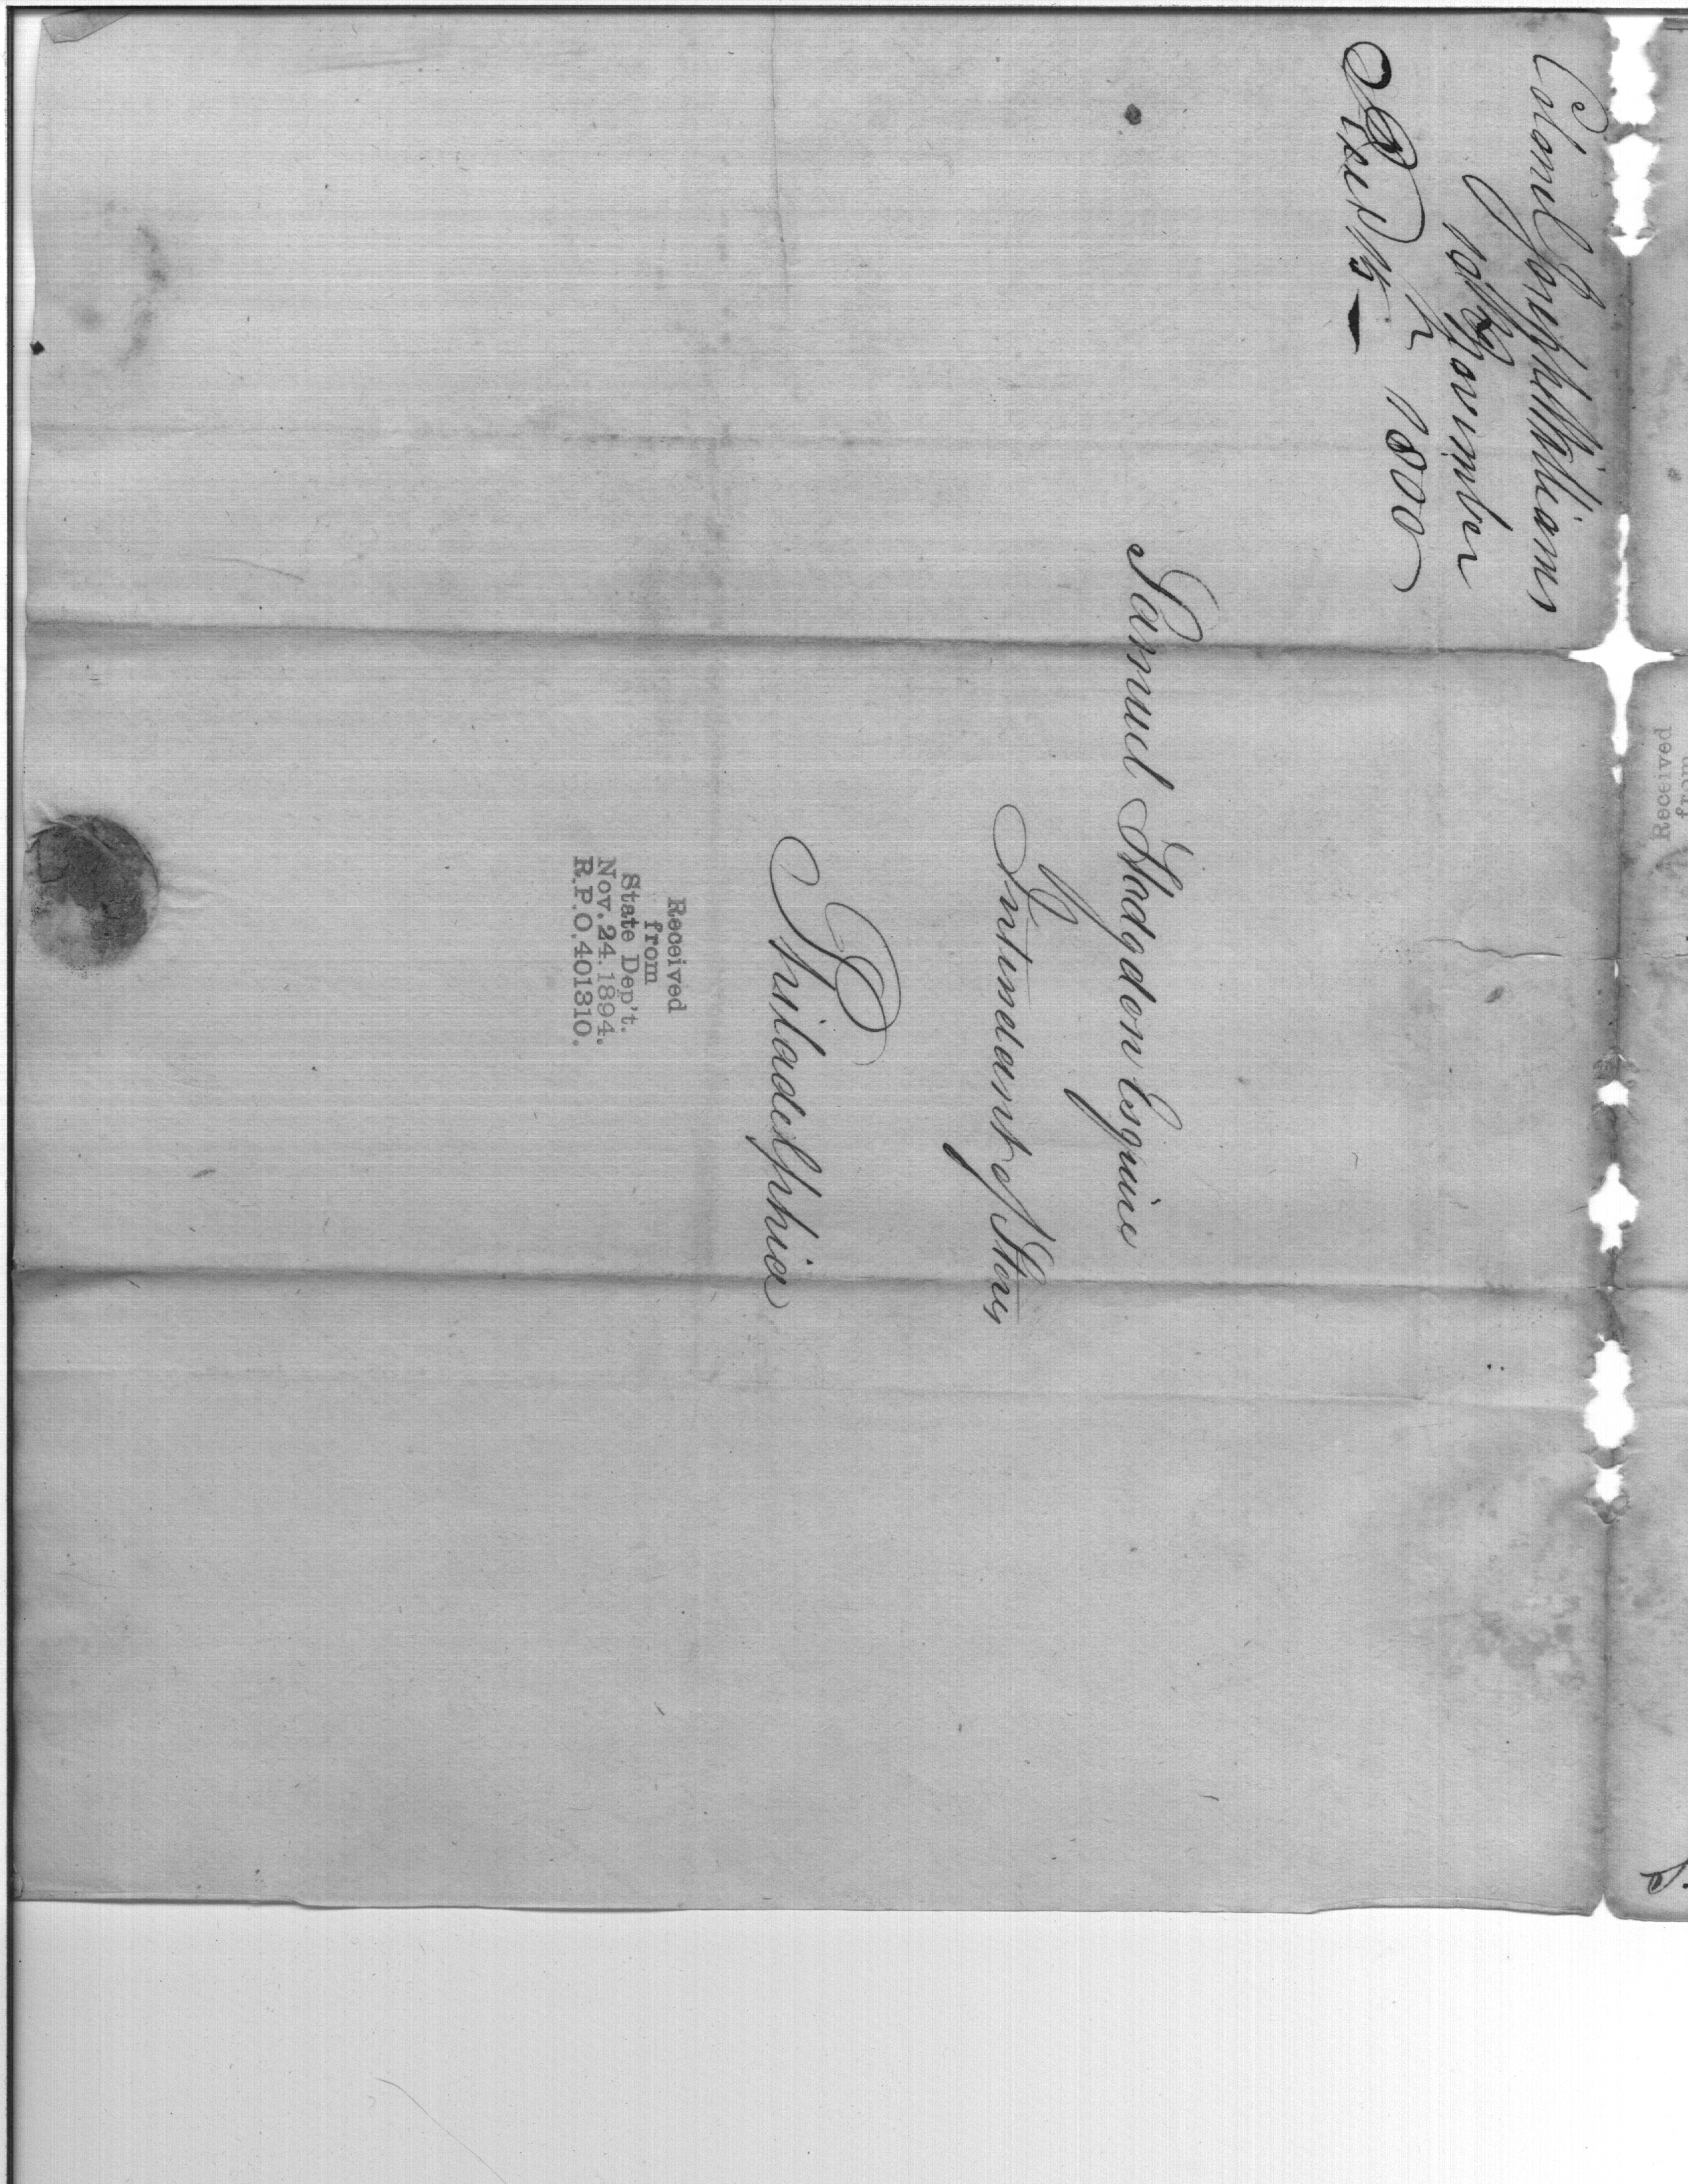 Colonel Jona Williams
November
1800
Samuel Hodgdon Esquire
Intendant of Stores
Philadelphia
Received
from
State Dep't.
Nov. 24. 1894.
R.P.O. 401310.
Received
from